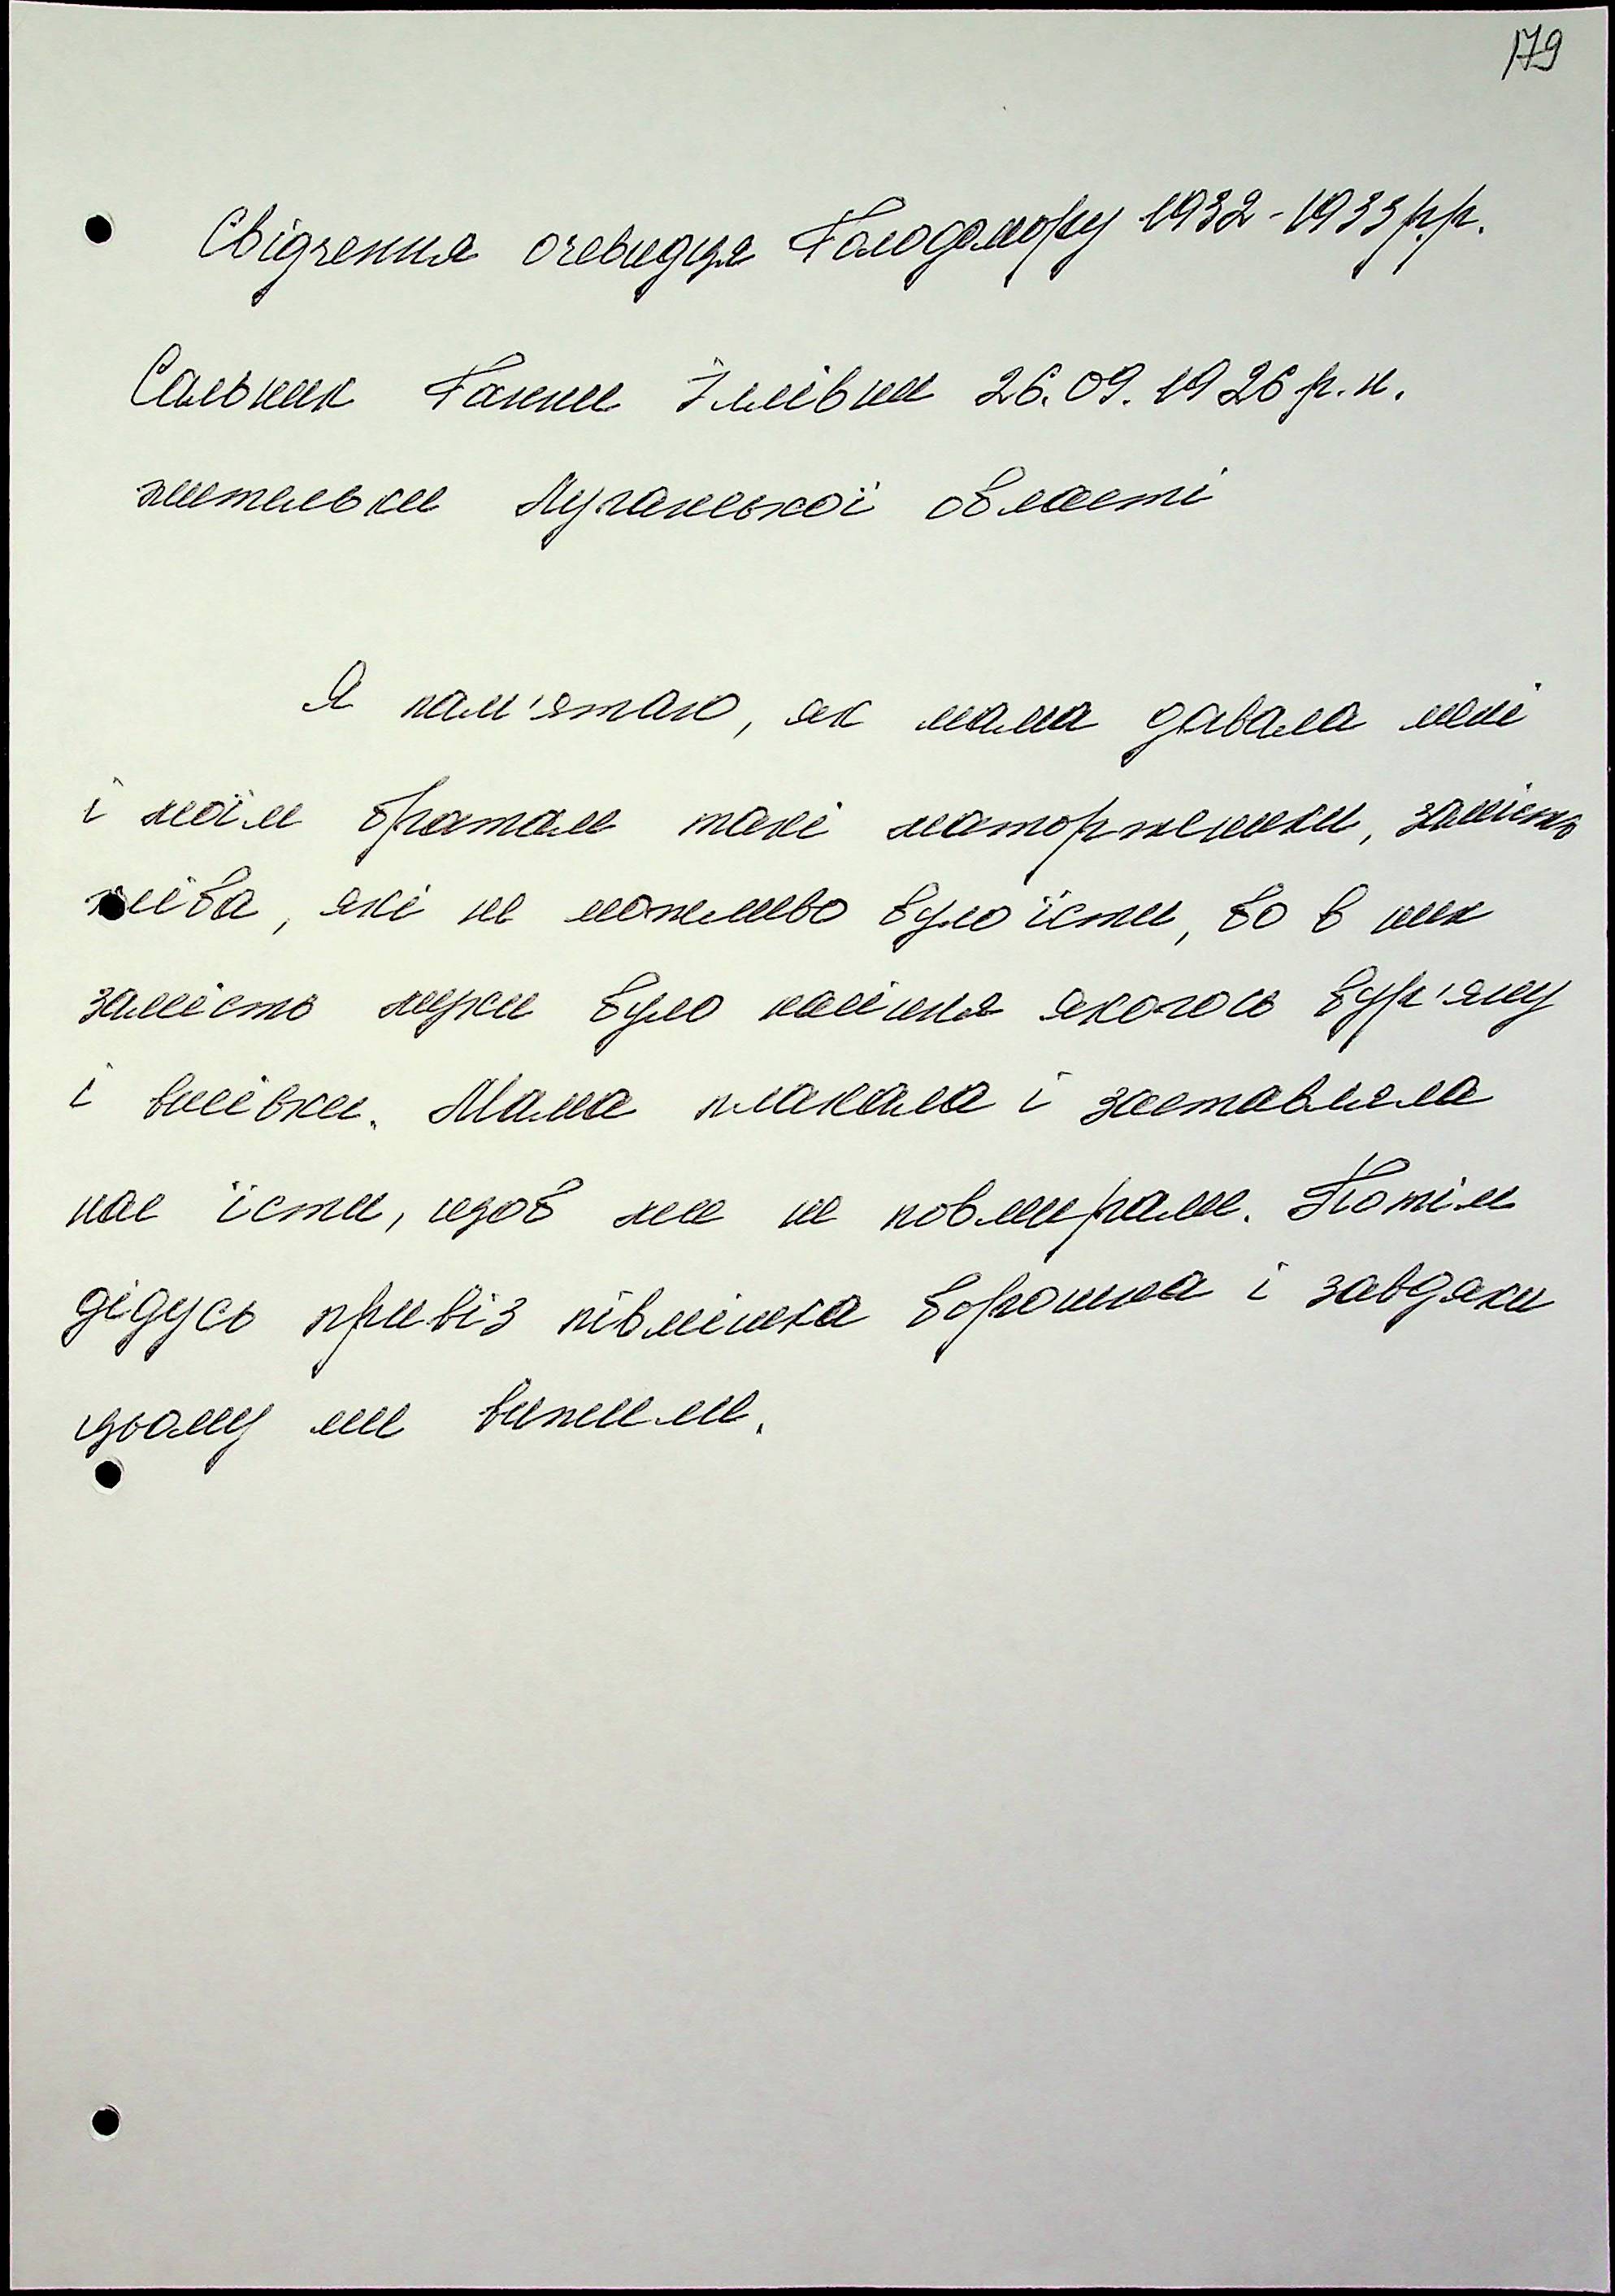 179
Свідчення очевидця Голодомору 1932-1933 р.р.
Сальник Ганни Іллівни 26.09.1926 р.н.
жительки Луганської області
Я пам'ятаю, як мама давала мені
і моїм братам такі маторженики, замість
хліба, які не можливо було їсти, бо в них
замість муки було насіння якогось бур'яну
і висівки. Мама плакала і заставляла
нас їсти, щоб ми не повмирали. Потім
дідусь привіз півмішка борошна і завдяки
цьому ми вижили.